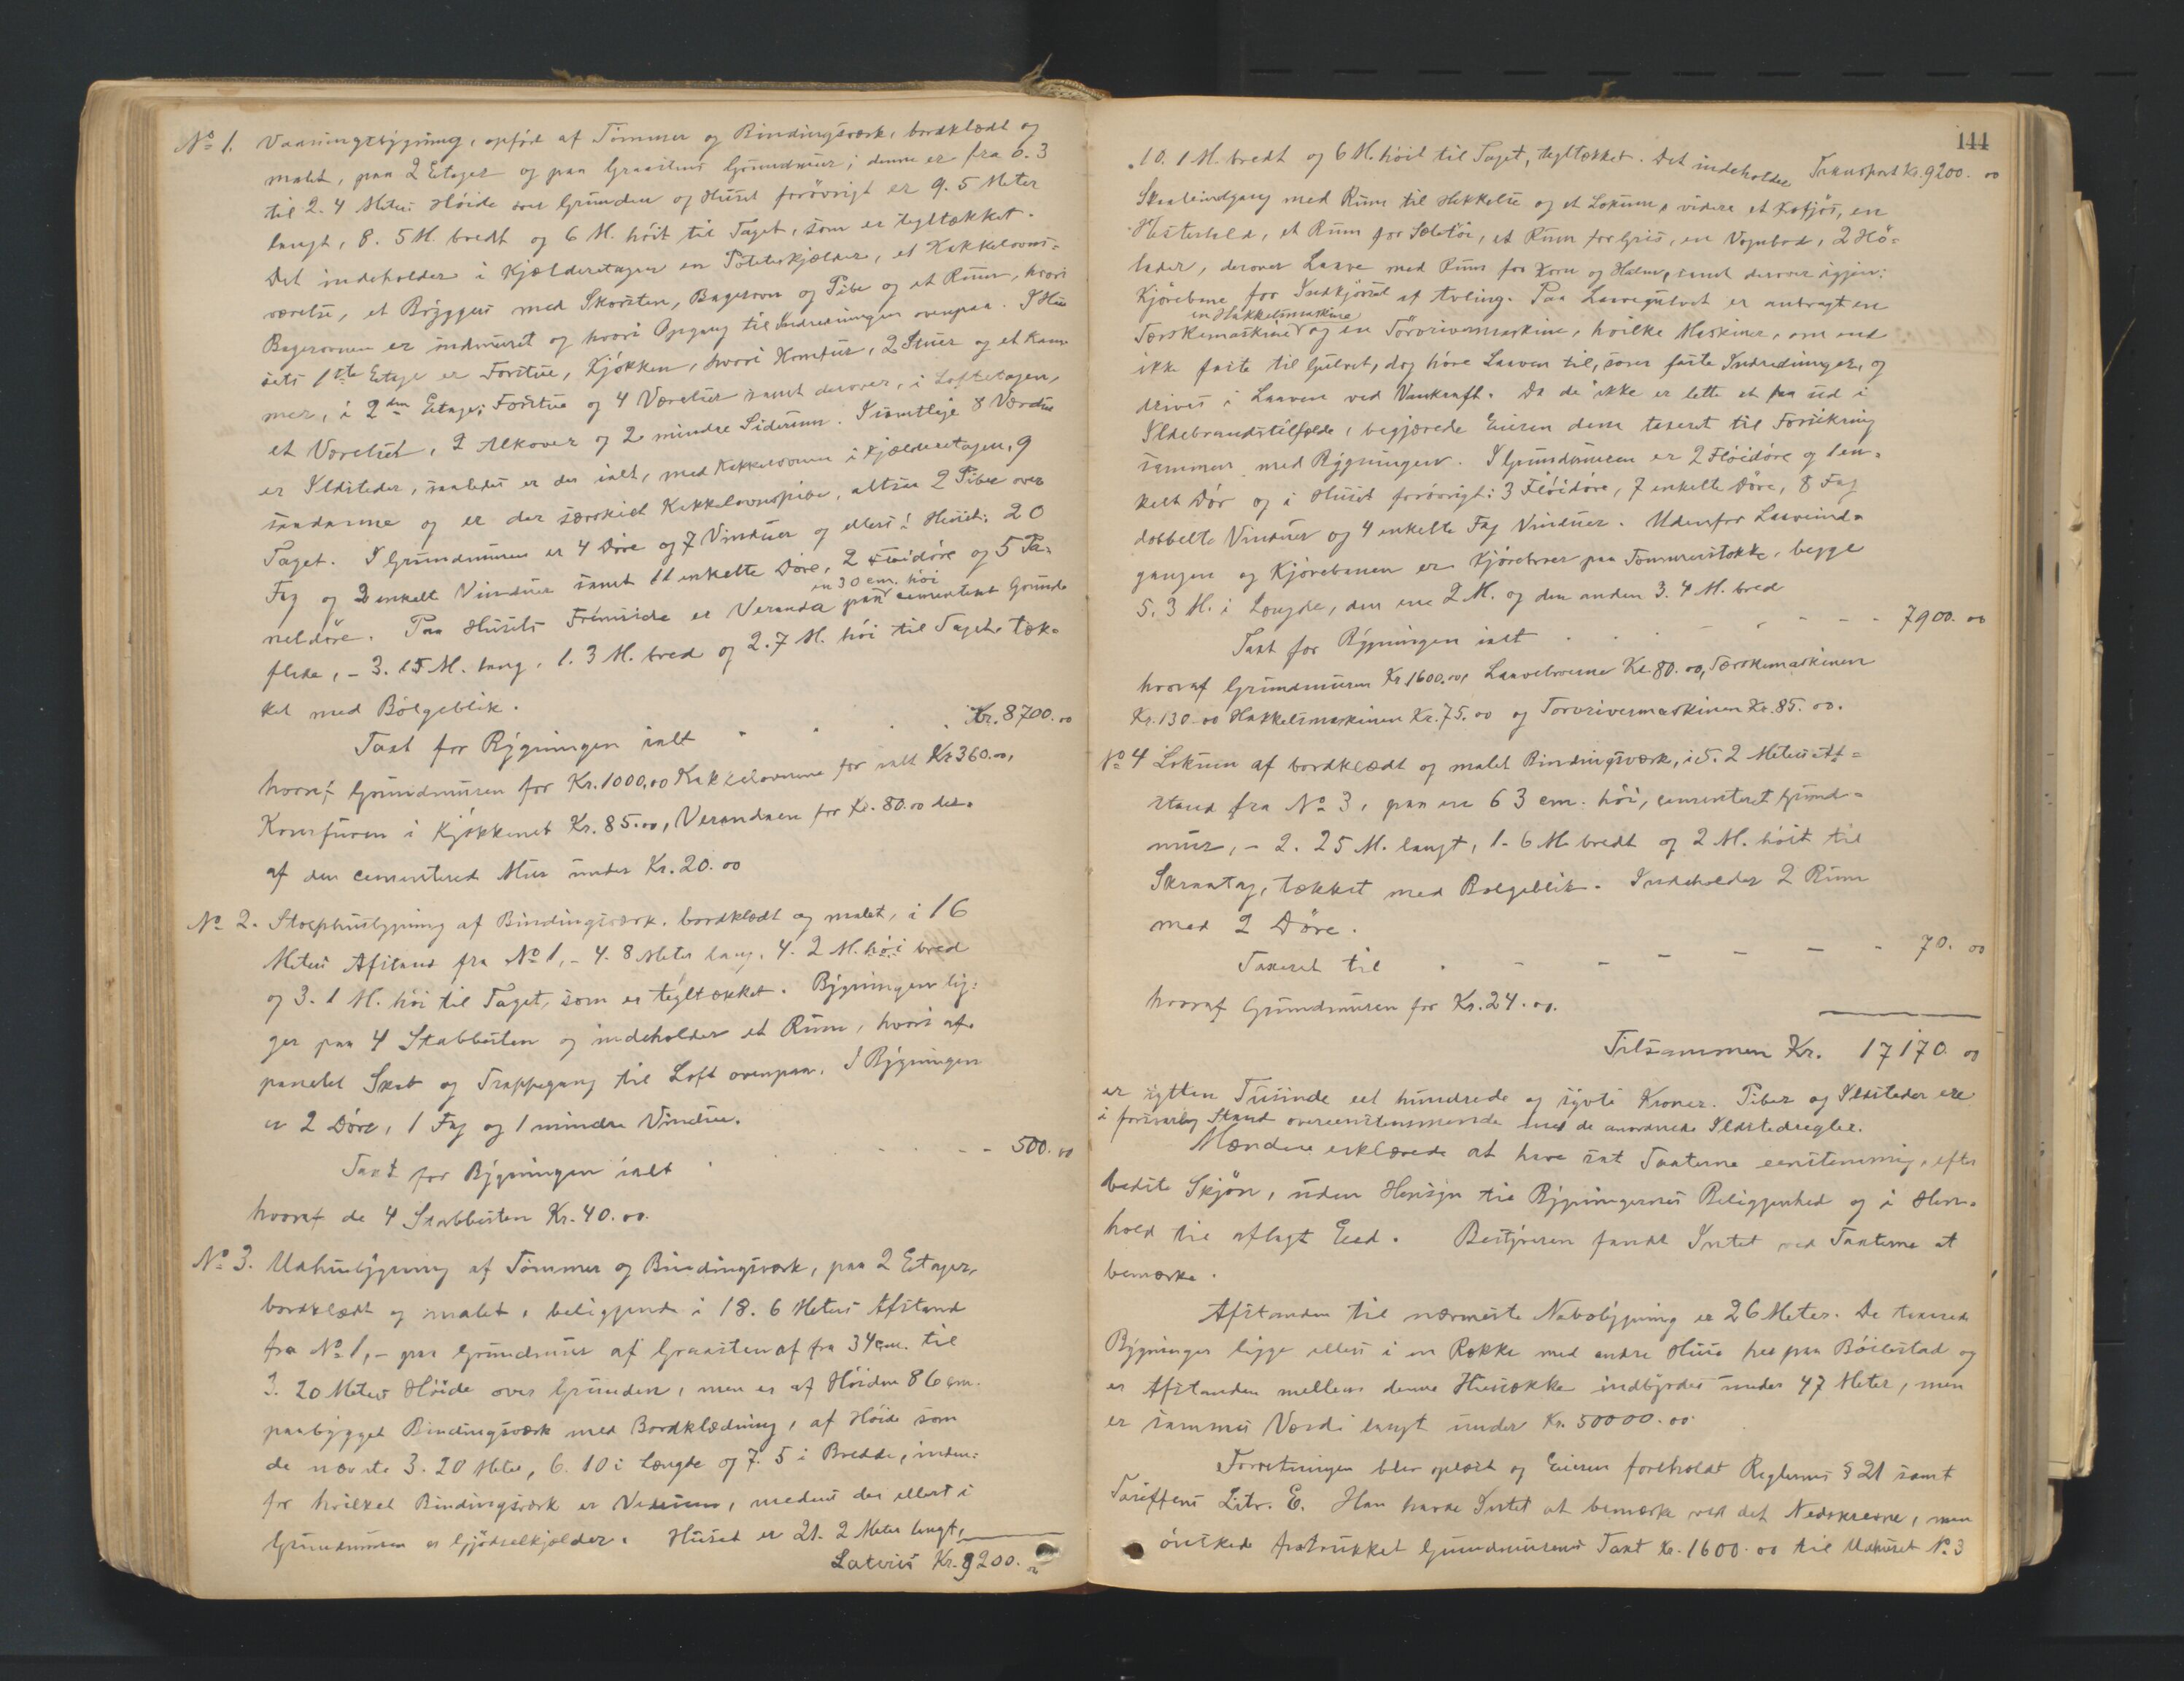 No 1. Vaaningsbygning, opført af Tømmer og Bindingsværk, bordklædt og
malet, paa 2 Etager og paa Graastens Grundmur; denne er fra 0.3
til 2.4 Meters Høide over Grunden og Huset forøvrigt er 9.5 Meter
langt, 8.5 M. bredt og 6 M. höit til Taget, som er tegltækket.
Det indeholder i Kjælderetagen en Poteteskjælder, et Kakkelovns-
værelse, et Bryggers med Skorsten, Bagerovn og Pibe og et Rum, hvori
Bagerovnen er indmuret og hvori Opgang til Indredningen ovenpaa. I Hu-
sets 1ste Etage er Forstue, Kjøkken, hvori Komfur, 2 Stuer og et Kam-
mer, i 2den Etage: Forstue og 4 Værelser samt derover, i Loftetagen,
et Værelse, 2 Alkover og 2 mindre Siderum. I samtlige 8 Værelser
er Ildsteder, saaledes er der ialt, med Kakkelovnen i Kjælderetagen, 9
saadanne og er der særskilt Kakkelovnspibe, altsaa 2 Piber over
Taget. I Grundmuren er 4 Døre og 7 Vinduer og ellers i Huset: 20
Fag og 2 enkelt Vinduer samt 11 enkelte Døre, 2 Fløidøre og 5 Pa-
neldøre. Paa Husets Fremside er Veranda paa en 30 cm. høi cementeret Grund-
flade, - 3.15 M. lang, 1.3 M. bred og 2.7 M. høi til Taget, tæk-
ket med Bølgeblik.
Taxt for Bygningen ialt . . . . Kr. 8700.00
hvoraf Grundmuren for Kr. 1000.00 Kakkelovnene for ialt Kr 360.00,
Komfuren i Kjøkkenet Kr. 85.00, Verandaen for Kr. 80.00 der-
af den cementered Mur under Kr. 20.00
No 2. Stolphusbygning af Bindingsværk, bordklædt og malet, i 16
Meters Afstand fra No 1, - 4.8 Meter lang, 4.2 M. høi bred
og 3.1 M. høi til Taget, som er tegltækket. Bygningen lig-
ger paa 4 Stabbesten og indeholder et Rum, hvori af-
panelet Skab og Trappegang til Loft ovenpaa. I Bygningen
er 2 Døre, 1 Fag og 1 mindre Vindue.
Taxt for Bygningen ialt . . . - - 500.00
hvoraf de 4 Stabbesten Kr. 40.00.
No 3. Udhusbygning af Tømmer og Bindingsværk, paa 2 Etager,
bordklædt og malet, beliggende i 18.6 Meters Afstand
fra No 1, - paa Grundmur af Graasten af fra 34 cm. til
3.20 Meters Høide over Grunden, men er af Høiden 86 cm.
paabygget Bindingsværk med Bordklædning, af Høide som
de nævnte 3.20 Meter, 6.10 i Længde og 7.5 i Bredde, inden-
for hvilket Bindingsværk er Vedrum, medens der ellers i
Grundmuren er Gjødselkjælder. Huset er 21.2 Meter langt,
Lateris Kr. 9200.00
144
Transport Kr. 9200.00
10.1 M. bredt og 6 M. höit til Taget, tegltækket. Det indeholder
Skaaleindgang med Rum til Hakkelse og et Lokum, videre et Kofjøs, en
Hestestald, et Rum for Seletøi, et Rum for Gris, en Vognbod, 2 Hø-
lader, derover Laave med Rum for Korn og Halm, samt derover igjen:
Kjørebane for Indkjørsel af Avling. Paa Laavegulvet er anbragt en
Tærskemaskine en Hakkelsmaskine og en Törvrivermaskine, hvilke Maskiner, om end
ikke faste til Gulvet, dog høre Laaven til, som faste Indredninger, og
drives i Laaven ved Vankraft. Da de ikke er lette at faa ud i
Ildebrandstilfælde, begjærede Eieren dem taxeret til Forsikring
sammen med Bygningen. I Grundmuren er 2 Fløidøre og 1 en-
kelt Dør og i Huset forøvrigt: 3 Fløidøre, 7 enkelte Døre, 8 Fag
dobbelte Vinduer og 4 enkelte Fag Vinduer. Udenfor Laaveind-
gangen og Kjørebanen er Kjørebroer paa Tømmerstokke, begge
5.3 M. i Længde, den ene 2 M. og den anden 3.4 M. bred
Taxt for Bygningen ialt . . . - - - - 7900.00
hvoraf Grundmuren Kr 1600.00, Laavebroerne Kr. 80.00, Tærskemaskinen
Kr. 130.00 Hakkelsmaskinen Kr. 75.00 og Torvrivermaskinen Kr. 85.00.
No 4 Lokum af bordklædt og malet Bindingsværk, i 5.2 Meters Af-
stand fra No 3, paa en 63 cm. høi, cementeret Grund-
mur, - 2.25 M. langt, 1.6 M. bredt og 2 M. høit til
Skraatag, tækket med Bølgeblik. Indeholder 2 Rum
med 2 Døre.
Taxeret til . - - - - - - 70.00
hvoraf Grundmuren for Kr. 24.00.
Tilsammen Kr. 17170.00
er sytten Tusinde eet hundrede og sÿvti Kroner. Piber og Ildsteder ere
i forsvarlig Stand overensstemmende med de anordnede Ildstedregler.
Mændene erklærede at have sat Taxterne eenstemmig, efter
bedste Skjøn, uden Hensyn til Bygningernes Beliggenhed og i Hen-
hold til aflagt Eed. Bestyreren fandt Intet ved Taxterne at
bemærke.
Afstanden til nærmeste Nabobygning er 26 Meter. De taxerede
Bygninger ligge ellers i en Række med andre Huse her paa Böilestad og
er Afstanden mellem denne Husrække indbyrdes under 47 Meter, men
er sammes Værdi langt under Kr. 50000.00
Forretningen blev oplæst og Eieren foreholdt Reglernes § 21 samt
Tariffens Litr. E. Han havde Intet at bemærke ved det Nedskrevne, men
önskede fratrukket Grundmurens Taxt Kr. 1600.00 til Udhuset No. 3